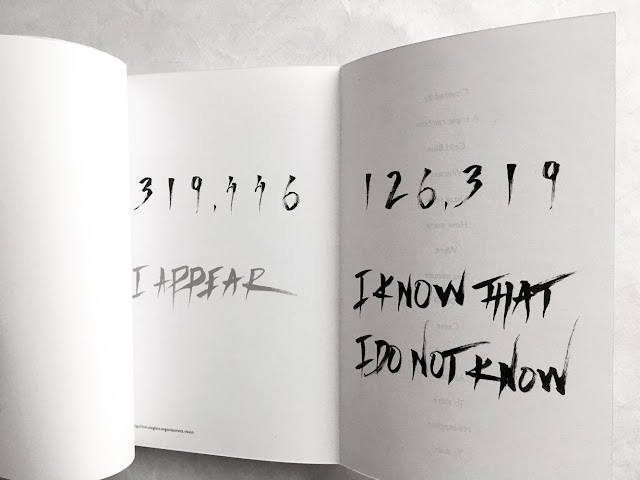 319,446
I APPEAR
126,319
I KNOW THAT
I DO NOT KNOW